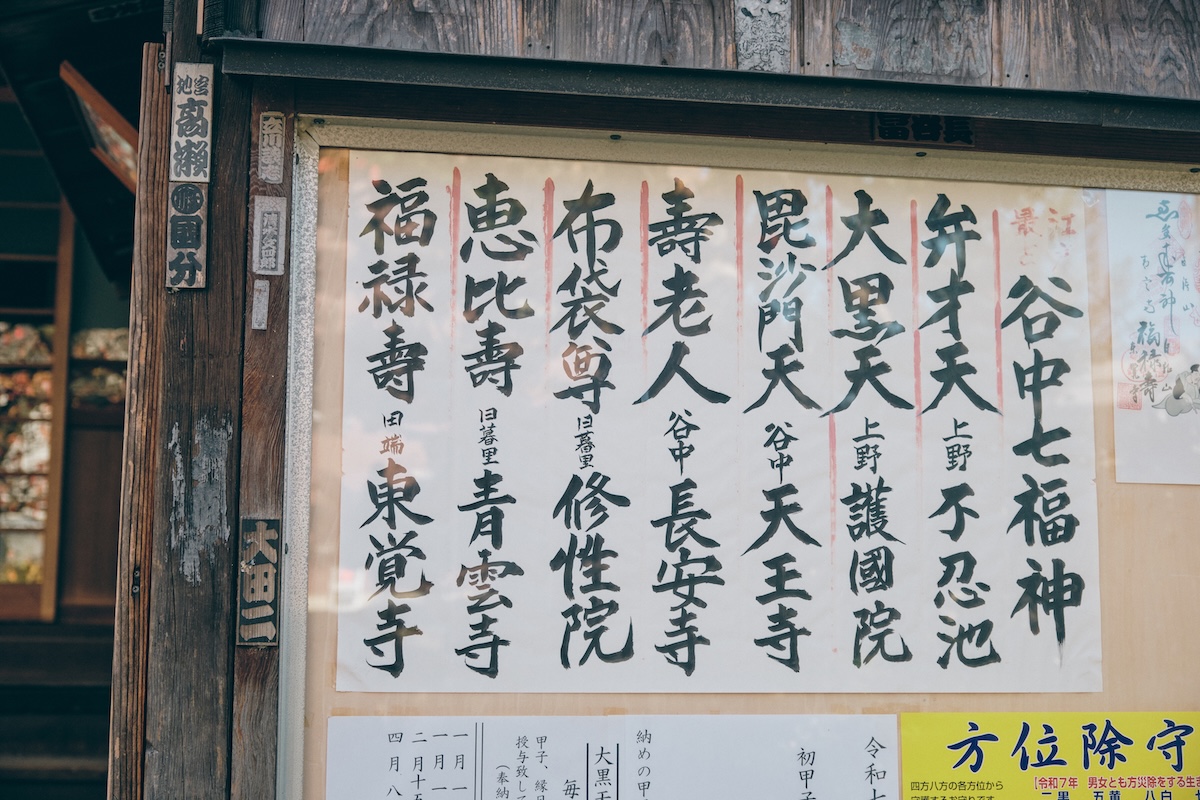 江戸
最
谷中七福神
弁才天 上野 不忍池
大黒天 上野 護國院
毘沙門天 谷中 天王寺
壽老人 谷中 長安寺
布袋尊 旧暮里 修性院
恵比壽 旧暮里 青雲寺
福禄壽 田端 東覚寺
高瀬
国分
大田二
令和七
初甲子
納めの甲
大黒天
毎
甲子、縁日
授与致して
(奉納
一月一
一月一
二月十五
四月八
方位除守
四方八方の各方位から
【令和7年 男女とも方災除をする生
二黒 五黄 八白